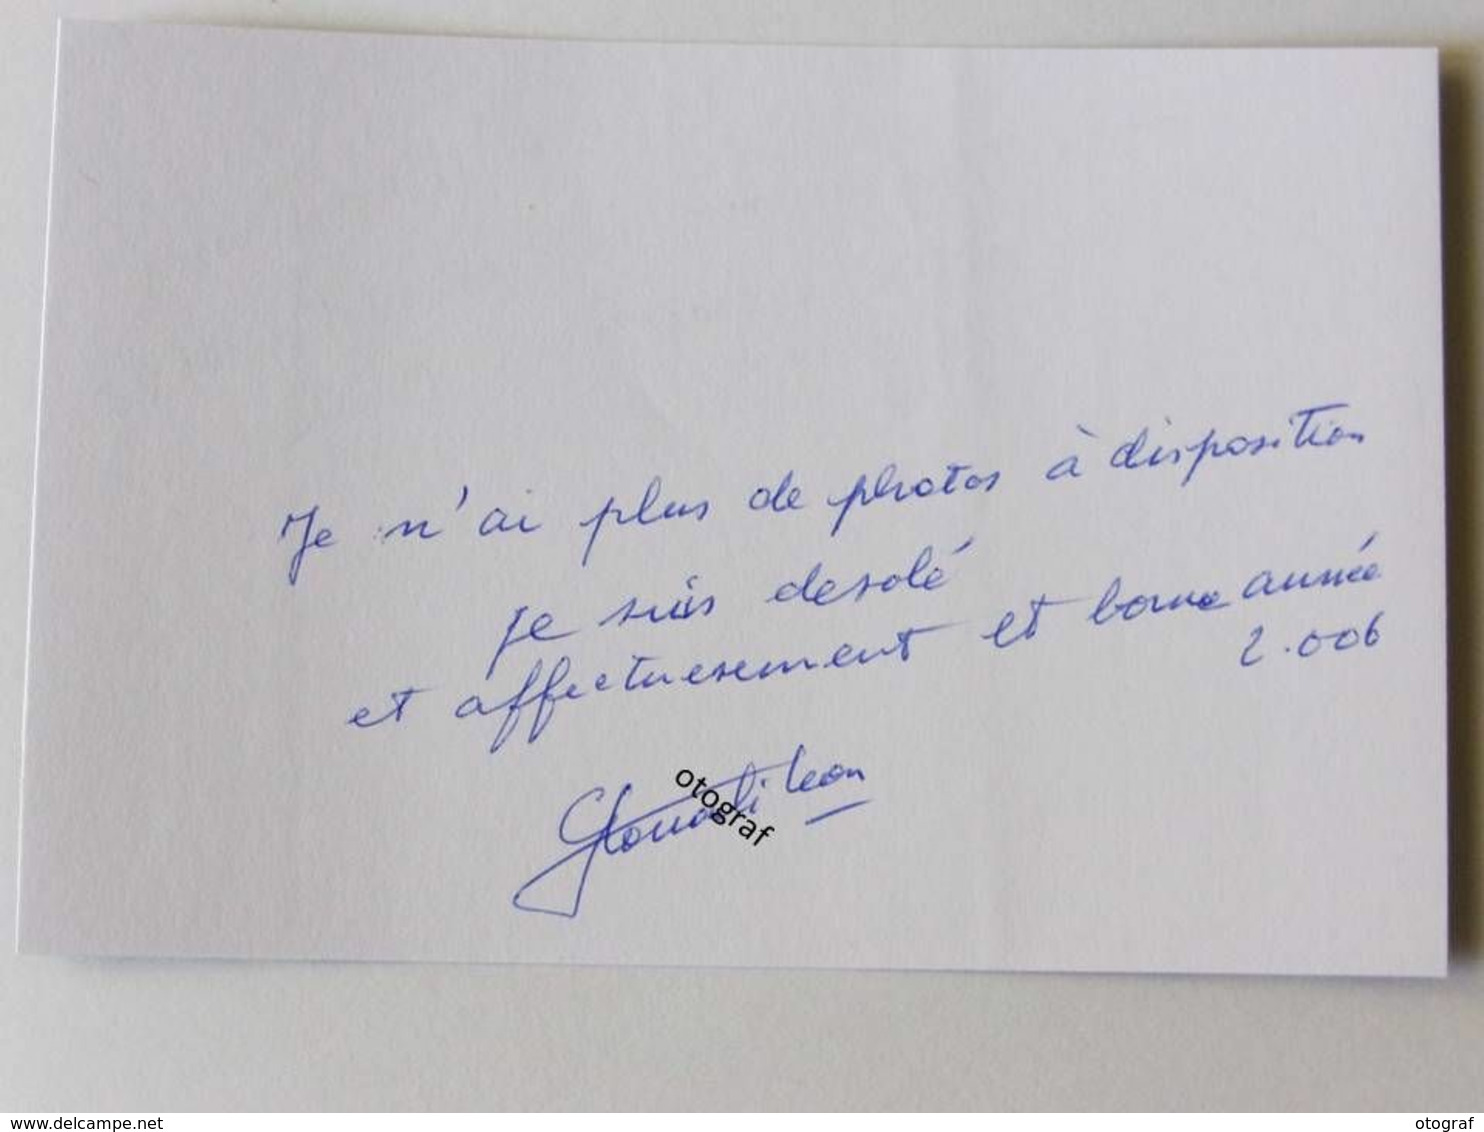 Je n'ai plus de photos à disposition
je suis desolé
et affectuesement et bonne année
2.006
Leon
otograf
www.delcampe.net
otograf